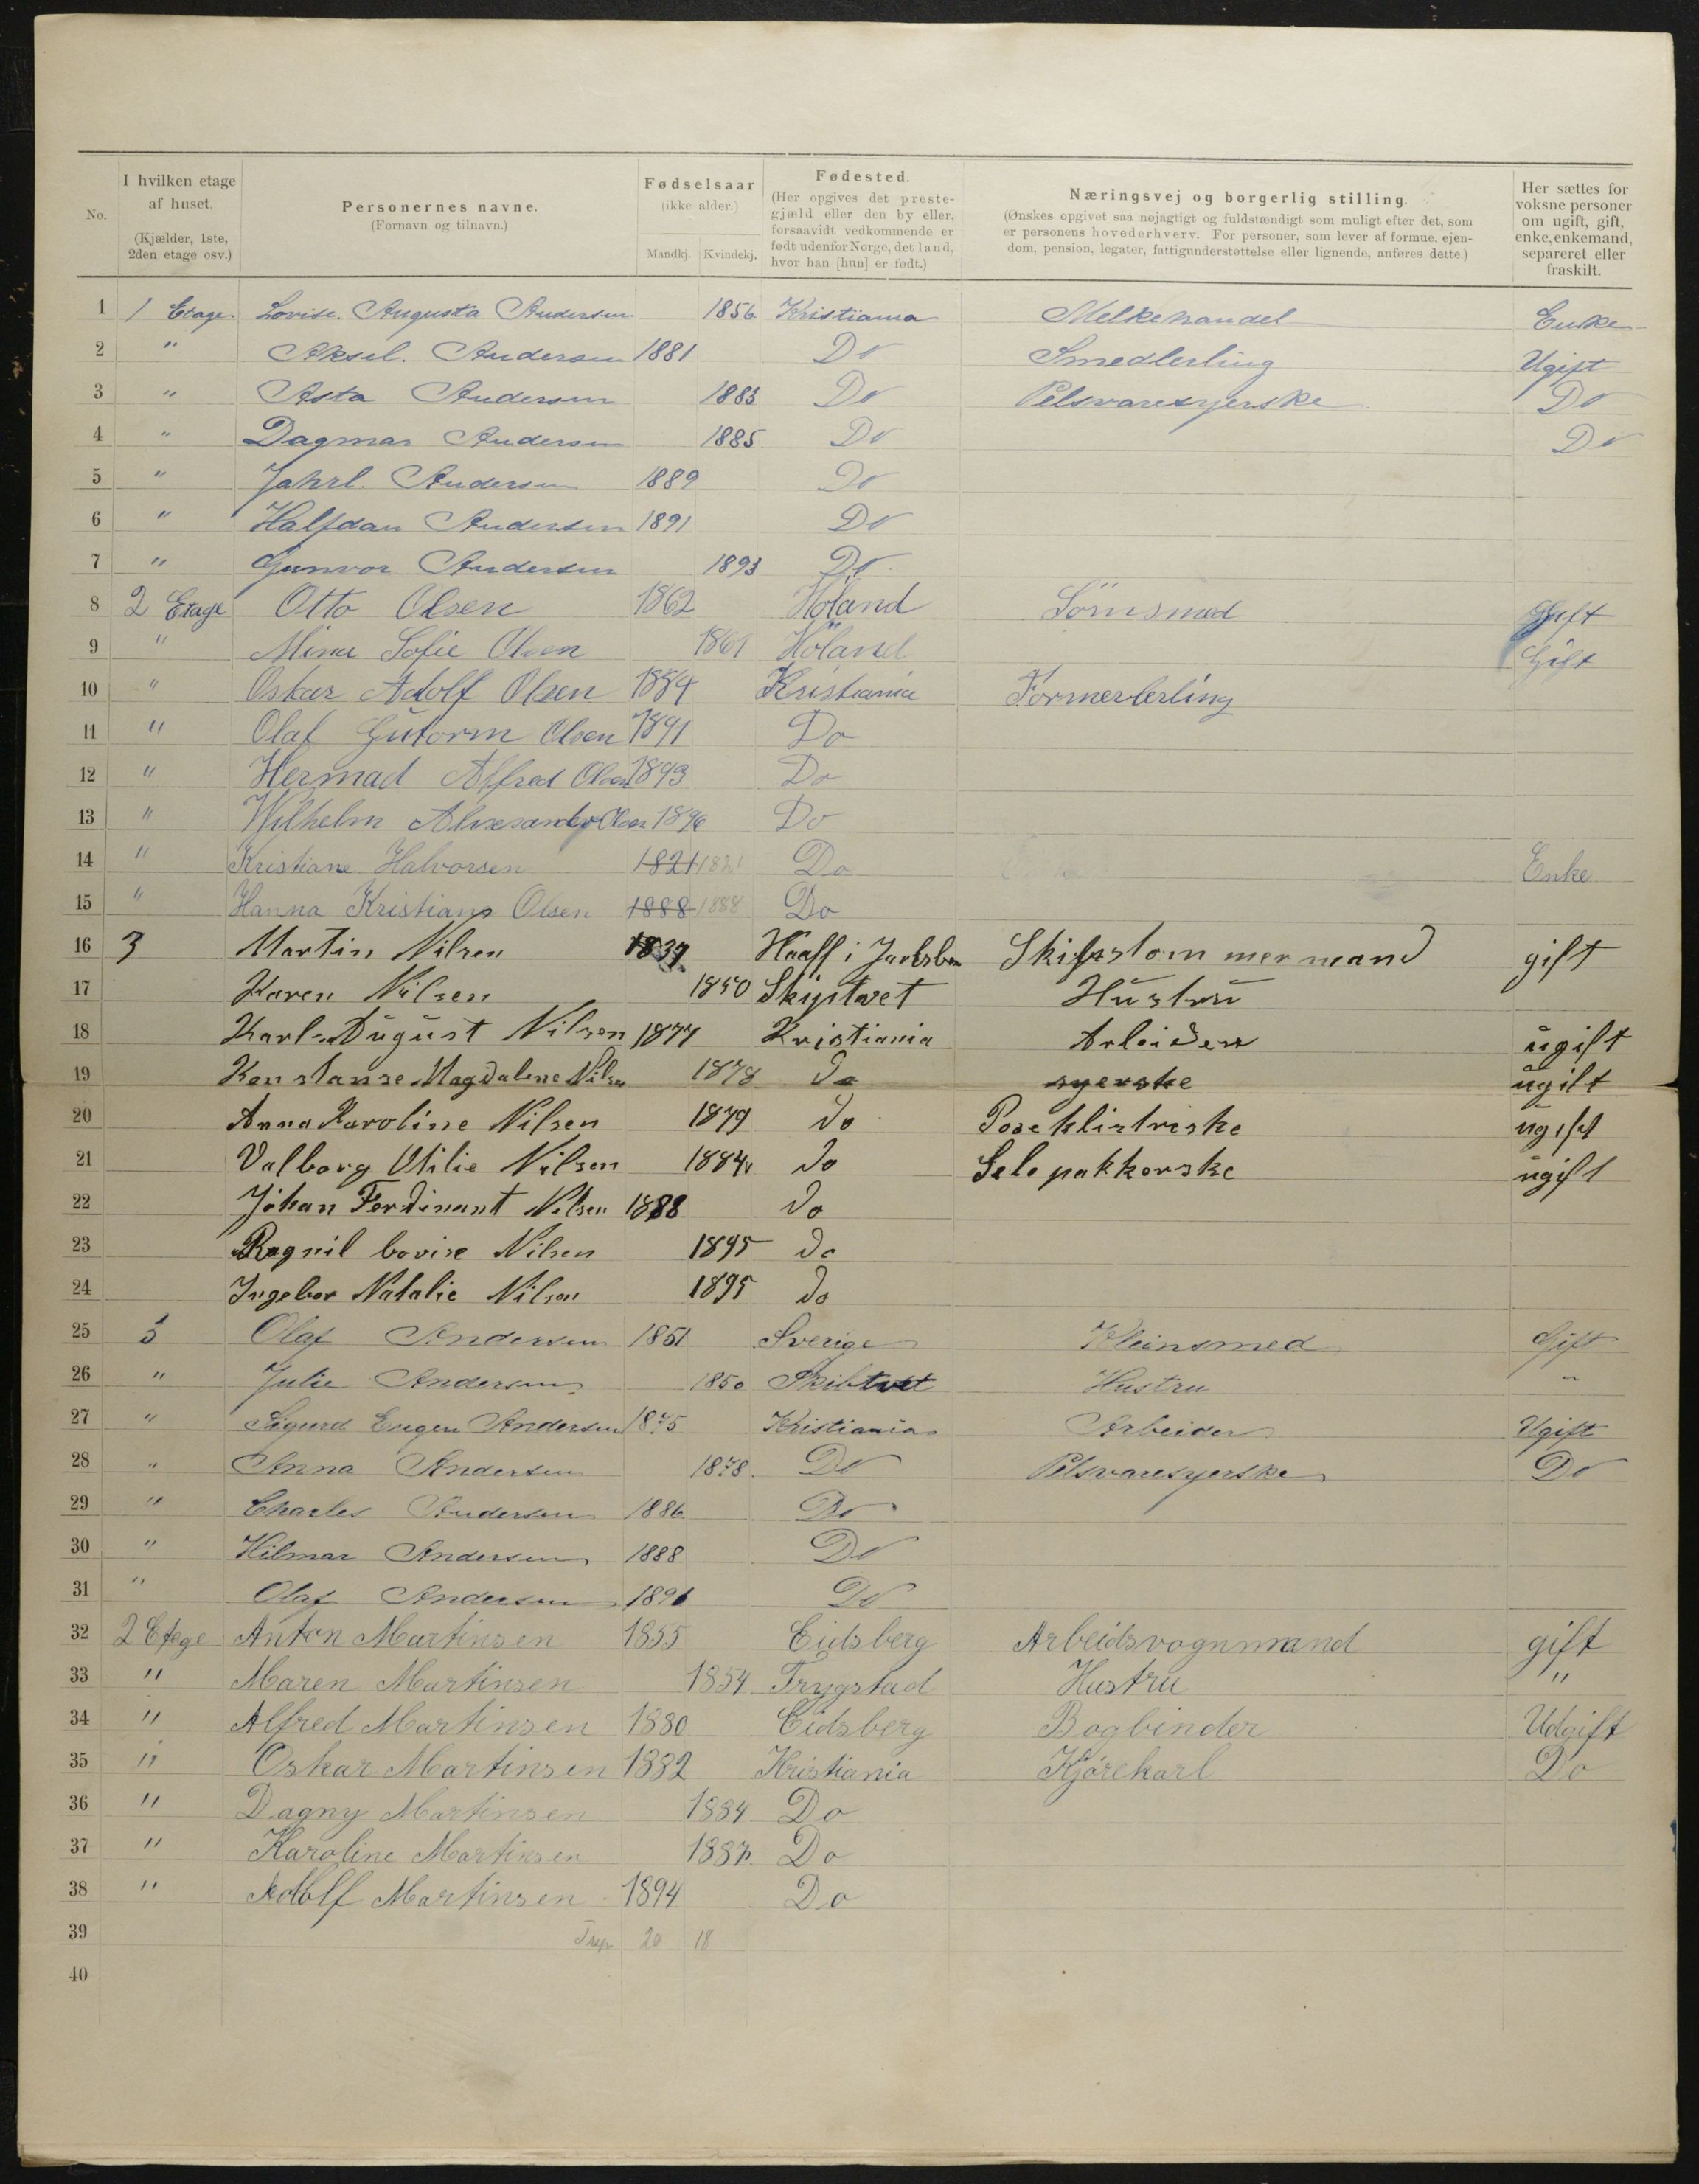 No.
I hvilken etage af huset. (Kjælder, 1ste, 2den etage osv.)
Personernes navne. (Fornavn og tilnavn.)
Fødselsaar (ikke alder.) Mandkj. Kvindekj.
Fødested. (Her opgives det prestegjæld eller den by eller, forsaavidt vedkommende er født udenfor Norge, det land, hvor han [hun] er født.)
Næringsvej og borgerlig stilling. (Ønskes opgivet saa nøjagtigt og fuldstændigt som muligt efter det, som er personens hovederhverv. For personer, som lever af formue, ejendom, pension, legater, fattigunderstøttelse eller lignende, anføres dette.)
Her sættes for voksne personer om ugift, gift, enke, enkemand, separeret eller fraskilt.
1 1 Etage. Lovise. Augusta Andersen 1856 Kristiania Melkehandel Enke
2 " Aksel. Andersen 1881 Do Smedlerling Ugift
3 " Asta Andersen 1883 Do Pelsvaresyerske Do
4 " Dagmar Andersen 1885 Do Do
5 " Jahrl. Andersen 1889 Do
6 " Halfdan Andersen 1891 Do
7 " Gunvor Andersen 1893 Do
8 2 Etage Otto Olsen 1862 Höland Sömsmed Gift
9 " Mina Sofie Olsen 1861 Höland Gift
10 " Oskar Adolf Olsen 1884 Kristiania Formerlerling
11 " Olaf Gutorm Olsen 1891 Do
12 " Hermad Alfred Olsen 1893 Do
13 " Wilhelm Alexsander Olsen 1896 Do
14 " Kristiane Halvorsen 1821 1821 Do Enke
15 " Hanna Kristiane Olsen 1888 1888 Do
16 3 Martin Nilsen 1839 Haaff i Jarlsber Skibstommermand gift
17 Karen Nilsen 1850 Skiptvet Hustru
18 Karl August Nilsen 1877 Kristiania Arbeider ugift
19 Konstanse Magdalene Nilsen 1878 Do syerske ugift
20 Anna Karoline Nilsen 1879 Do Poseklistreske ugift
21 Valborg Otilie Nilsen 1884 Do Selepakkerske ugift
22 Johan Ferdinant Nilsen 1888 Do
23 Ragnil Lovise Nilsen 1895 Do
24 Ingebor Natalie Nilsen 1895 Do
25 3 Olaf Andersen 1851 Sverige Kleinsmed Gift
26 " Julie Andersen 1850 Skibtvet Hustru "
27 " Sigurd Eugen Andersen 1875 Kristiania Arbeider Ugift
28 " Anna Andersen 1878. Do Pelsvaresyerske Do
29 " Charles Andersen 1886 Do
30 " Hilmar Andersen 1888 Do
31 " Olaf Andersen 1891 Do
32 2 Etege Anton Martinsen 1855 Eidsberg Arbeidsvognmand gift
33 " Maren Martinsen 1854 Trygstad Hustru "
34 " Alfred Martinsen 1880 Eidsberg Bogbinder Udgift
35 " Oskar Martinsen 1882 Kristiania Kjørekarl Do
36 " Dagny Martinsen 1884 Do
37 " Karoline Martinsen 1887. Do
38 " Adolf Martinsen 1894 Do
39 20 18
40